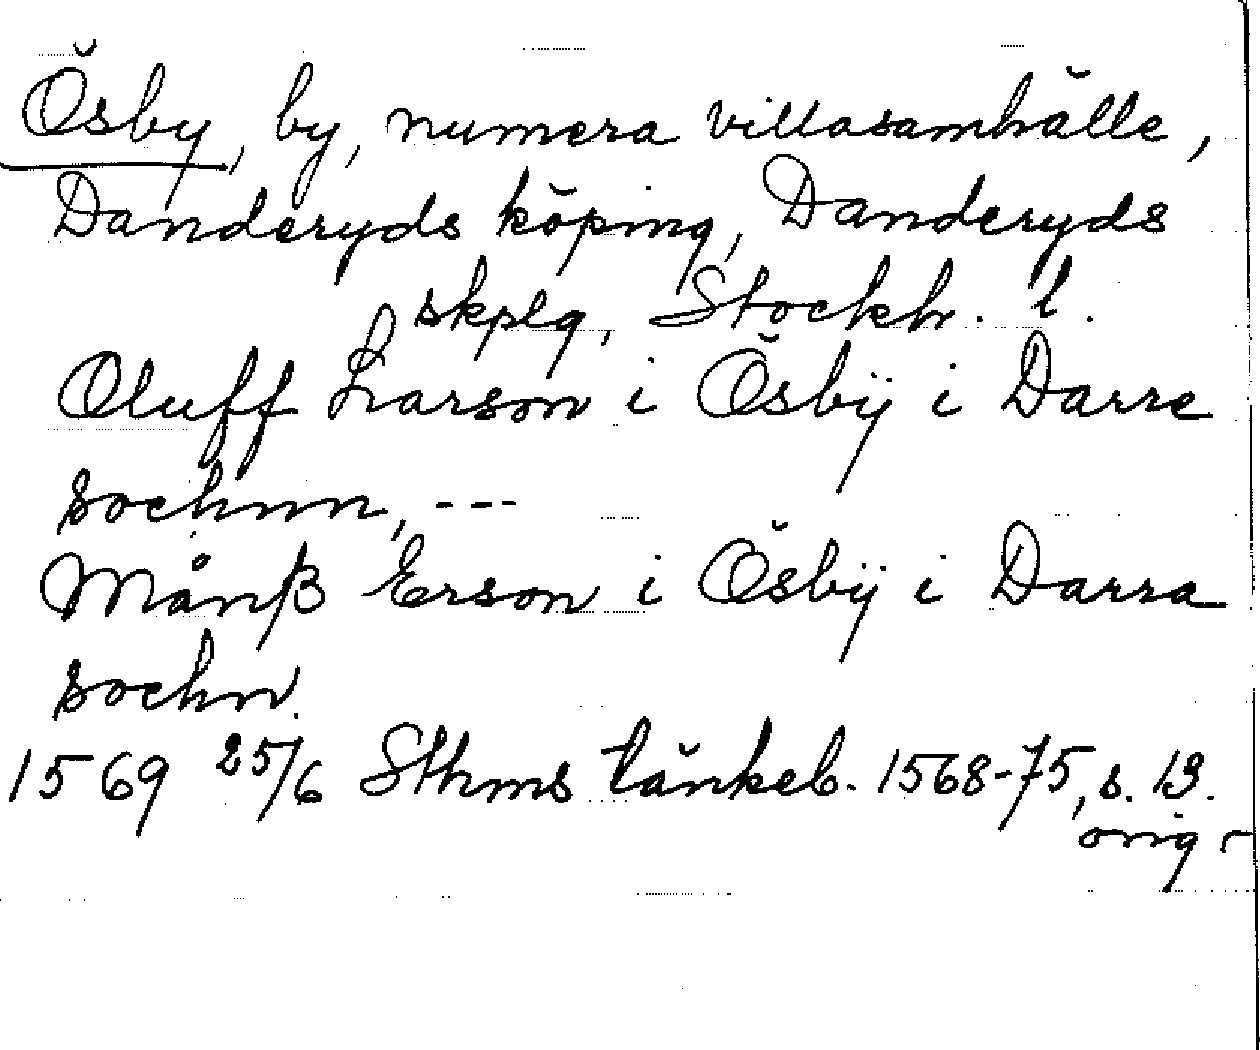 Ösby, by, numera villasamhälle,
Danderyds köping, Danderyds
skplg, Stockh. l.
Oluff Larson i Ösbÿ i Darre
sochnn, ---
Månß Erson i Ösbÿ i Darra
sochn.
1569 25/6 Sthms tänkeb. 1568-75, s. 19.
orig